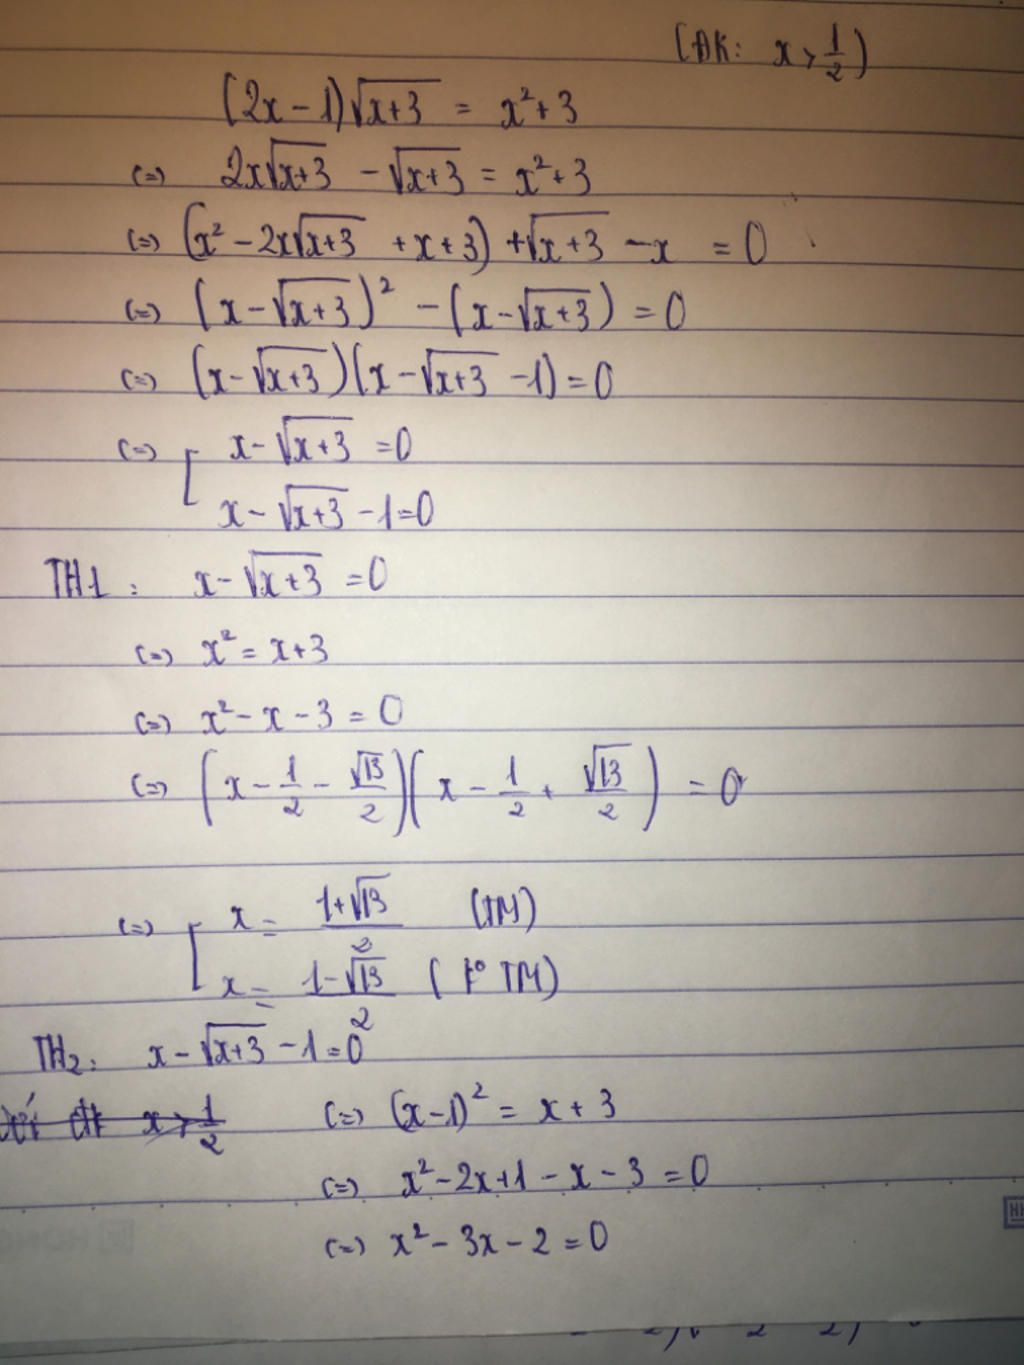 (ĐK: x > 1/2)
(2x - 1)√(x+3) = x² + 3
(=) 2x√(x+3) - √(x+3) = x² + 3
(=) (x² - 2x√(x+3) + x + 3) + √(x+3) - x = 0
(=) (x - √(x+3))² - (x - √(x+3)) = 0
(=) (x - √(x+3))(x - √(x+3) - 1) = 0
(=) [ x - √(x+3) = 0
x - √(x+3) - 1 = 0
TH1: x - √(x+3) = 0
(=) x² = x + 3
(=) x² - x - 3 = 0
(=) (x - 1/2 - √13/2)(x - 1/2 + √13/2) = 0
(=) [ x = (1+√13)/2 (TM)
x = (1-√13)/2 (K° TM)
TH2: x - √(x+3) - 1 = 0
x > 1/2 (=) (x-1)² = x + 3
(=) x² - 2x + 1 - x - 3 = 0
(=) x² - 3x - 2 = 0